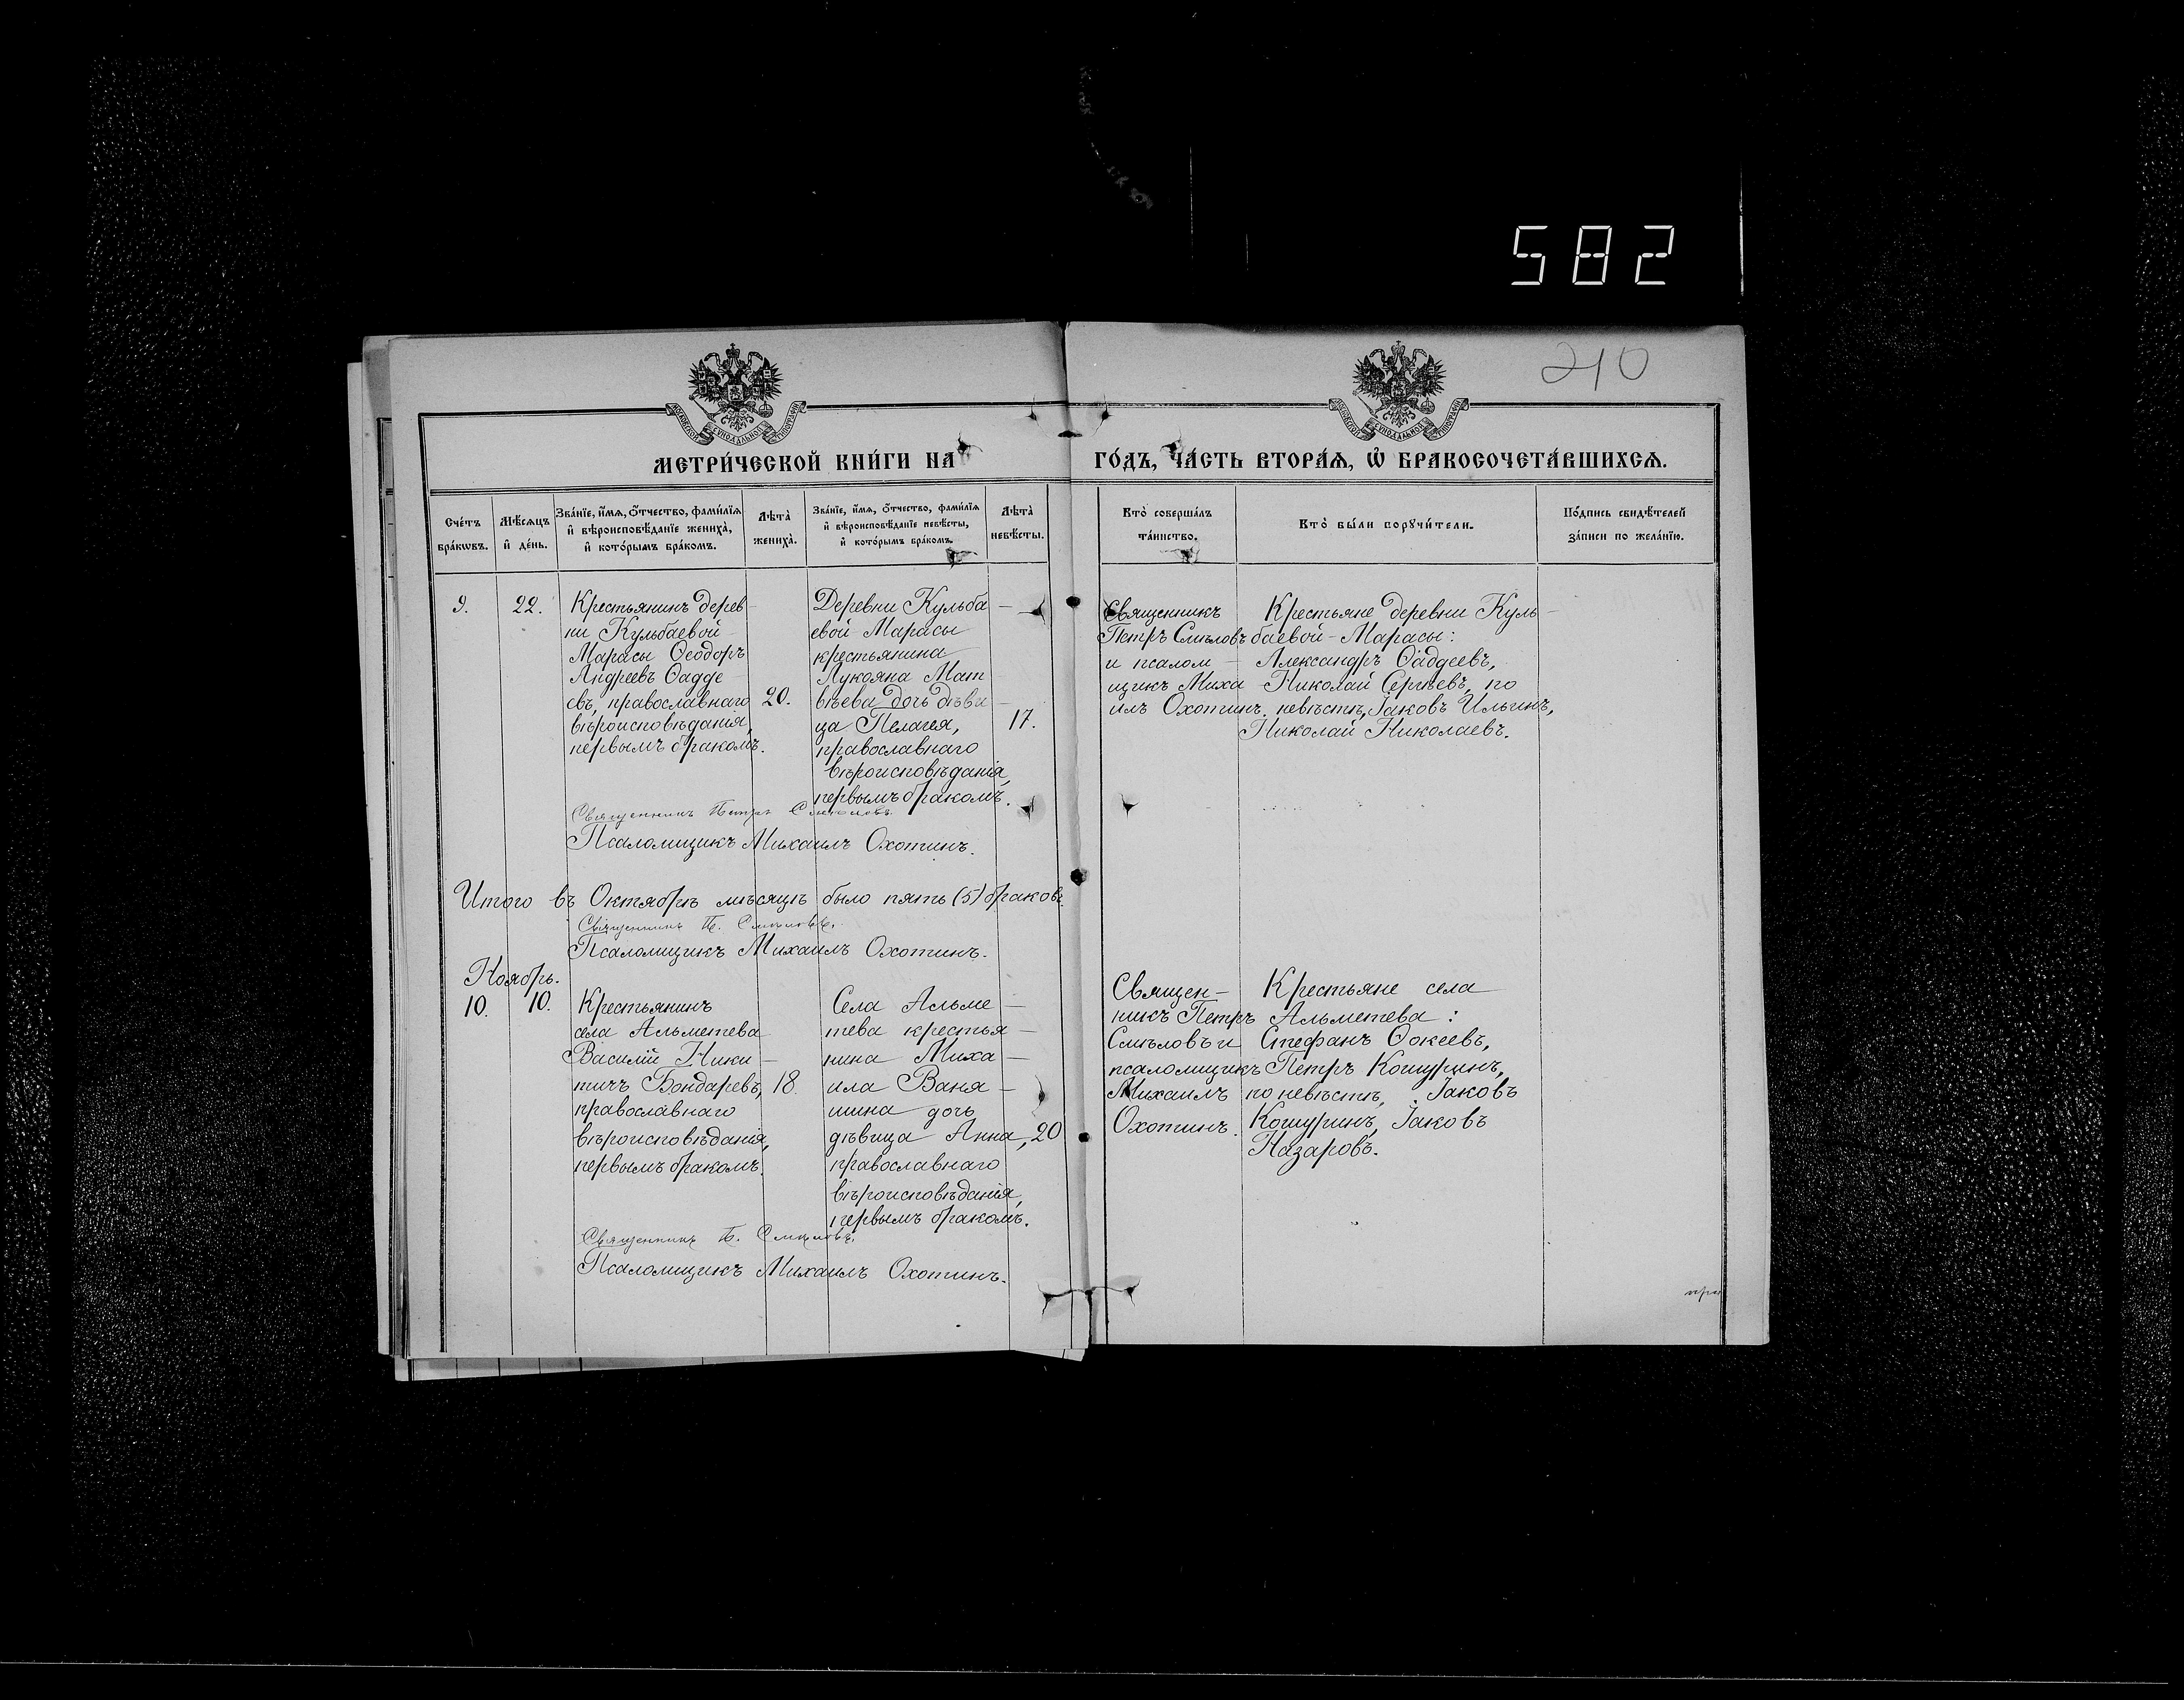 582
210
МОСКОВСКОЙ СѴНОДАЛЬНОЙ ТИПОГРАФІИ
МОСКОВСКОЙ СѴНОДАЛЬНОЙ ТИПОГРАФІИ
МЕТРИ́ЧЕСКОЙ КНИ́ГИ НА ГО́ДЪ, ЧА́СТЬ ВТОРА́Ѧ, Ѡ҆ БРАКОСОЧЕТА́ВШИХСѦ.
Сче́тъ
бра́кѡвъ.
Мѣ́сѧцъ
и҆ де́нь.
Зва́нїе, и҆́мѧ, ѻ҆́тчество, фами́лїѧ
и҆ вѣроисповѣ́данїе жениха̀,
и҆ кото́рымъ бра́комъ.
Лѣта̀
жениха̀.
Зва́нїе, и҆́мѧ, ѻ҆́тчество, фами́лїѧ
и҆ вѣроисповѣ́данїе невѣ́сты,
и҆ кото́рымъ бра́комъ.
Лѣта̀
невѣ́сты.
Кто̀ соверша́лъ
та́инство.
Кто̀ бы́ли порꙋчи́тели.
По́дпись свидѣ́телей
за́писи по жела́нїю.
9.
22.
Крестьянинъ дерев-
ни Кульбаевой-
Марасы Ѳеодоръ
Андреевъ Ѳадде-
евъ, православнаго
вѣроисповѣданія,
первымъ бракомъ.
20.
Деревни Кульба-
евой Марасы
крестьянина
Лукояна Мат-
вѣева дочь дѣви-
ца Пелагея,
православнаго
вѣроисповѣданія,
первымъ бракомъ.
17.
Священникъ
Петръ Смѣловъ
и псалом-
щикъ Миха-
илъ Охотинъ.
Крестьяне деревни Куль-
баевой-Марасы:
Александръ Ѳаддеевъ,
Николай Сергѣевъ, по
невѣстѣ, Іаковъ Ильинъ,
Николай Николаевъ.
Священникъ Петръ Смѣловъ.
Псаломщикъ Михаилъ Охотинъ.
Итого въ Октябрѣ мѣсяцѣ было пять (5) браковъ.
Священникъ П. Смѣловъ.
Псаломщикъ Михаилъ Охотинъ.
Ноябрь.
10.
10.
Крестьянинъ
села Альметева
Василій Ники-
тичъ Бондаревъ,
православнаго
вѣроисповѣданія,
первымъ бракомъ.
18.
Села Альме-
тева крестья-
нина Миха-
ила Ваня-
шина дочь
дѣвица Анна,
православнаго
вѣроисповѣданія,
первымъ бракомъ.
20
Священ-
никъ Петръ
Смѣловъ и
псаломщикъ
Михаилъ
Охотинъ.
Крестьяне села
Альметева:
Стефанъ Ѳокеевъ,
Петръ Кошуринъ,
по невѣстѣ, Іаковъ
Кошуринъ, Іаковъ
Назаровъ.
Священникъ П. Смѣловъ.
Псаломщикъ Михаилъ Охотинъ.